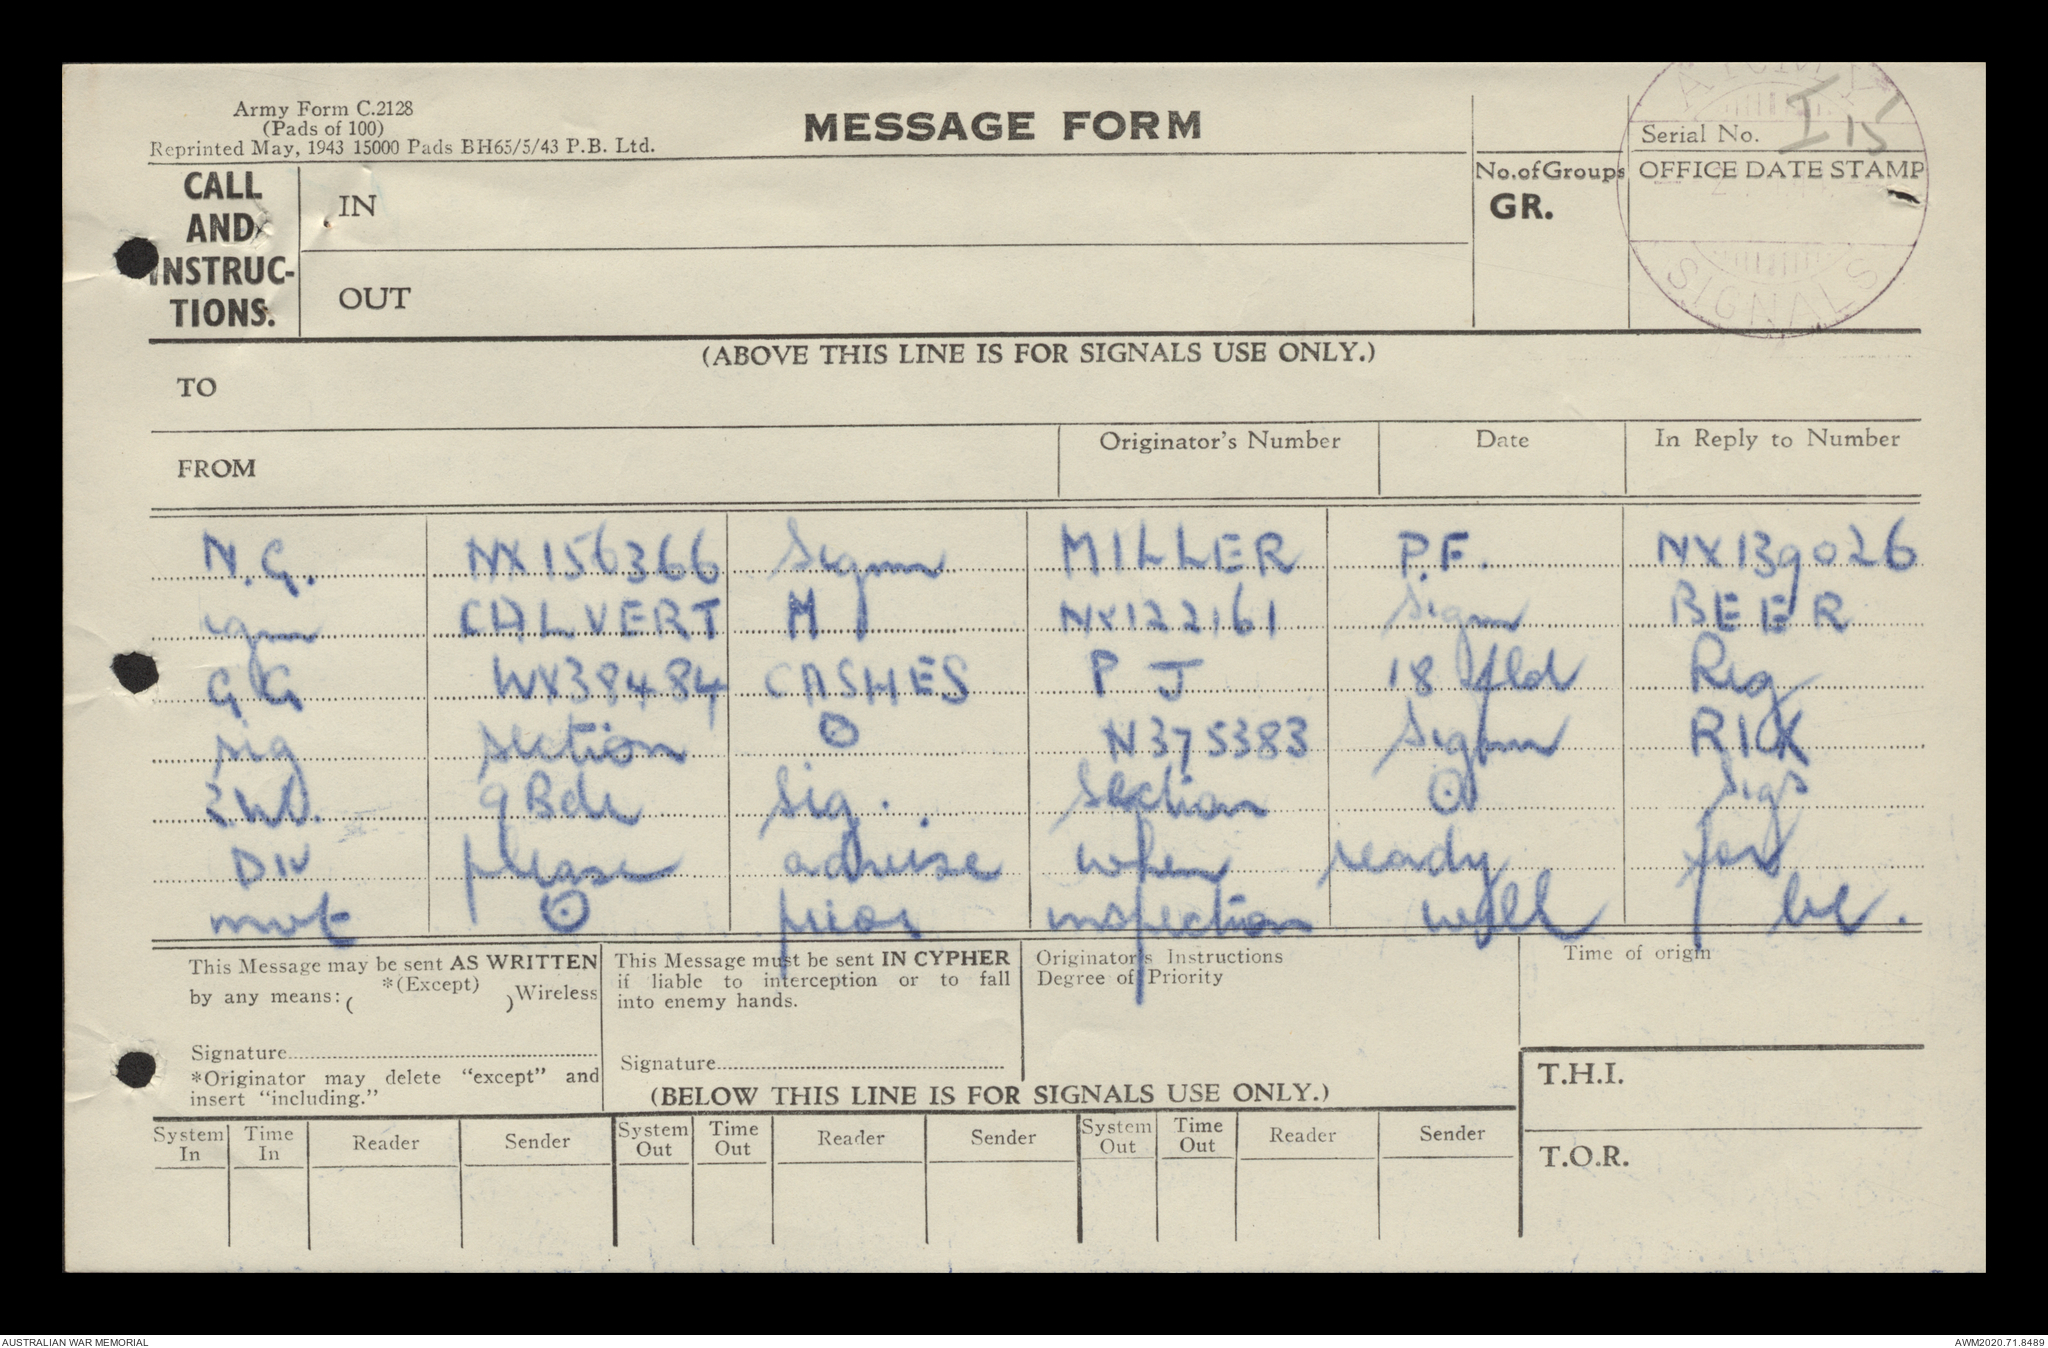 Army Form C.2128
(Pads of 100)
Reprinted May, 1943 15000 Pads BH65/5/43 P.B. Ltd.
MESSAGE FORM
Serial No. I 15
CALL AND INSTRUC-TIONS.
IN
OUT
No. of Groups
GR.
OFFICE DATE STAMP
SIGNALS
(ABOVE THIS LINE IS FOR SIGNALS USE ONLY.)
TO
FROM
Originator's Number
Date
In Reply to Number
N.G. NX156366 Sigmn MILLER P.F. NX139026
igmn CALVERT M NX122161 Sigmn BEER
G G WX38484 CASHES P J 18 fld Reg
sig section ⊙ N375383 Sigmn RIX
2WD. 9 Bde Sig. section ⊙ sigs
DIV please advise when ready for
mvt ⊙ prior inspection will be.
This Message may be sent AS WRITTEN
by any means: ( *(Except) ) Wireless
Signature
*Originator may delete "except" and
insert "including."
This Message must be sent IN CYPHER
if liable to interception or to fall
into enemy hands.
Signature
Originator's Instructions
Degree of Priority
Time of origin
(BELOW THIS LINE IS FOR SIGNALS USE ONLY.)
T.H.I.
T.O.R.
System In
Time In
Reader
Sender
System Out
Time Out
Reader
Sender
System Out
Time Out
Reader
Sender
AUSTRALIAN WAR MEMORIAL
AWM2020.71.8489